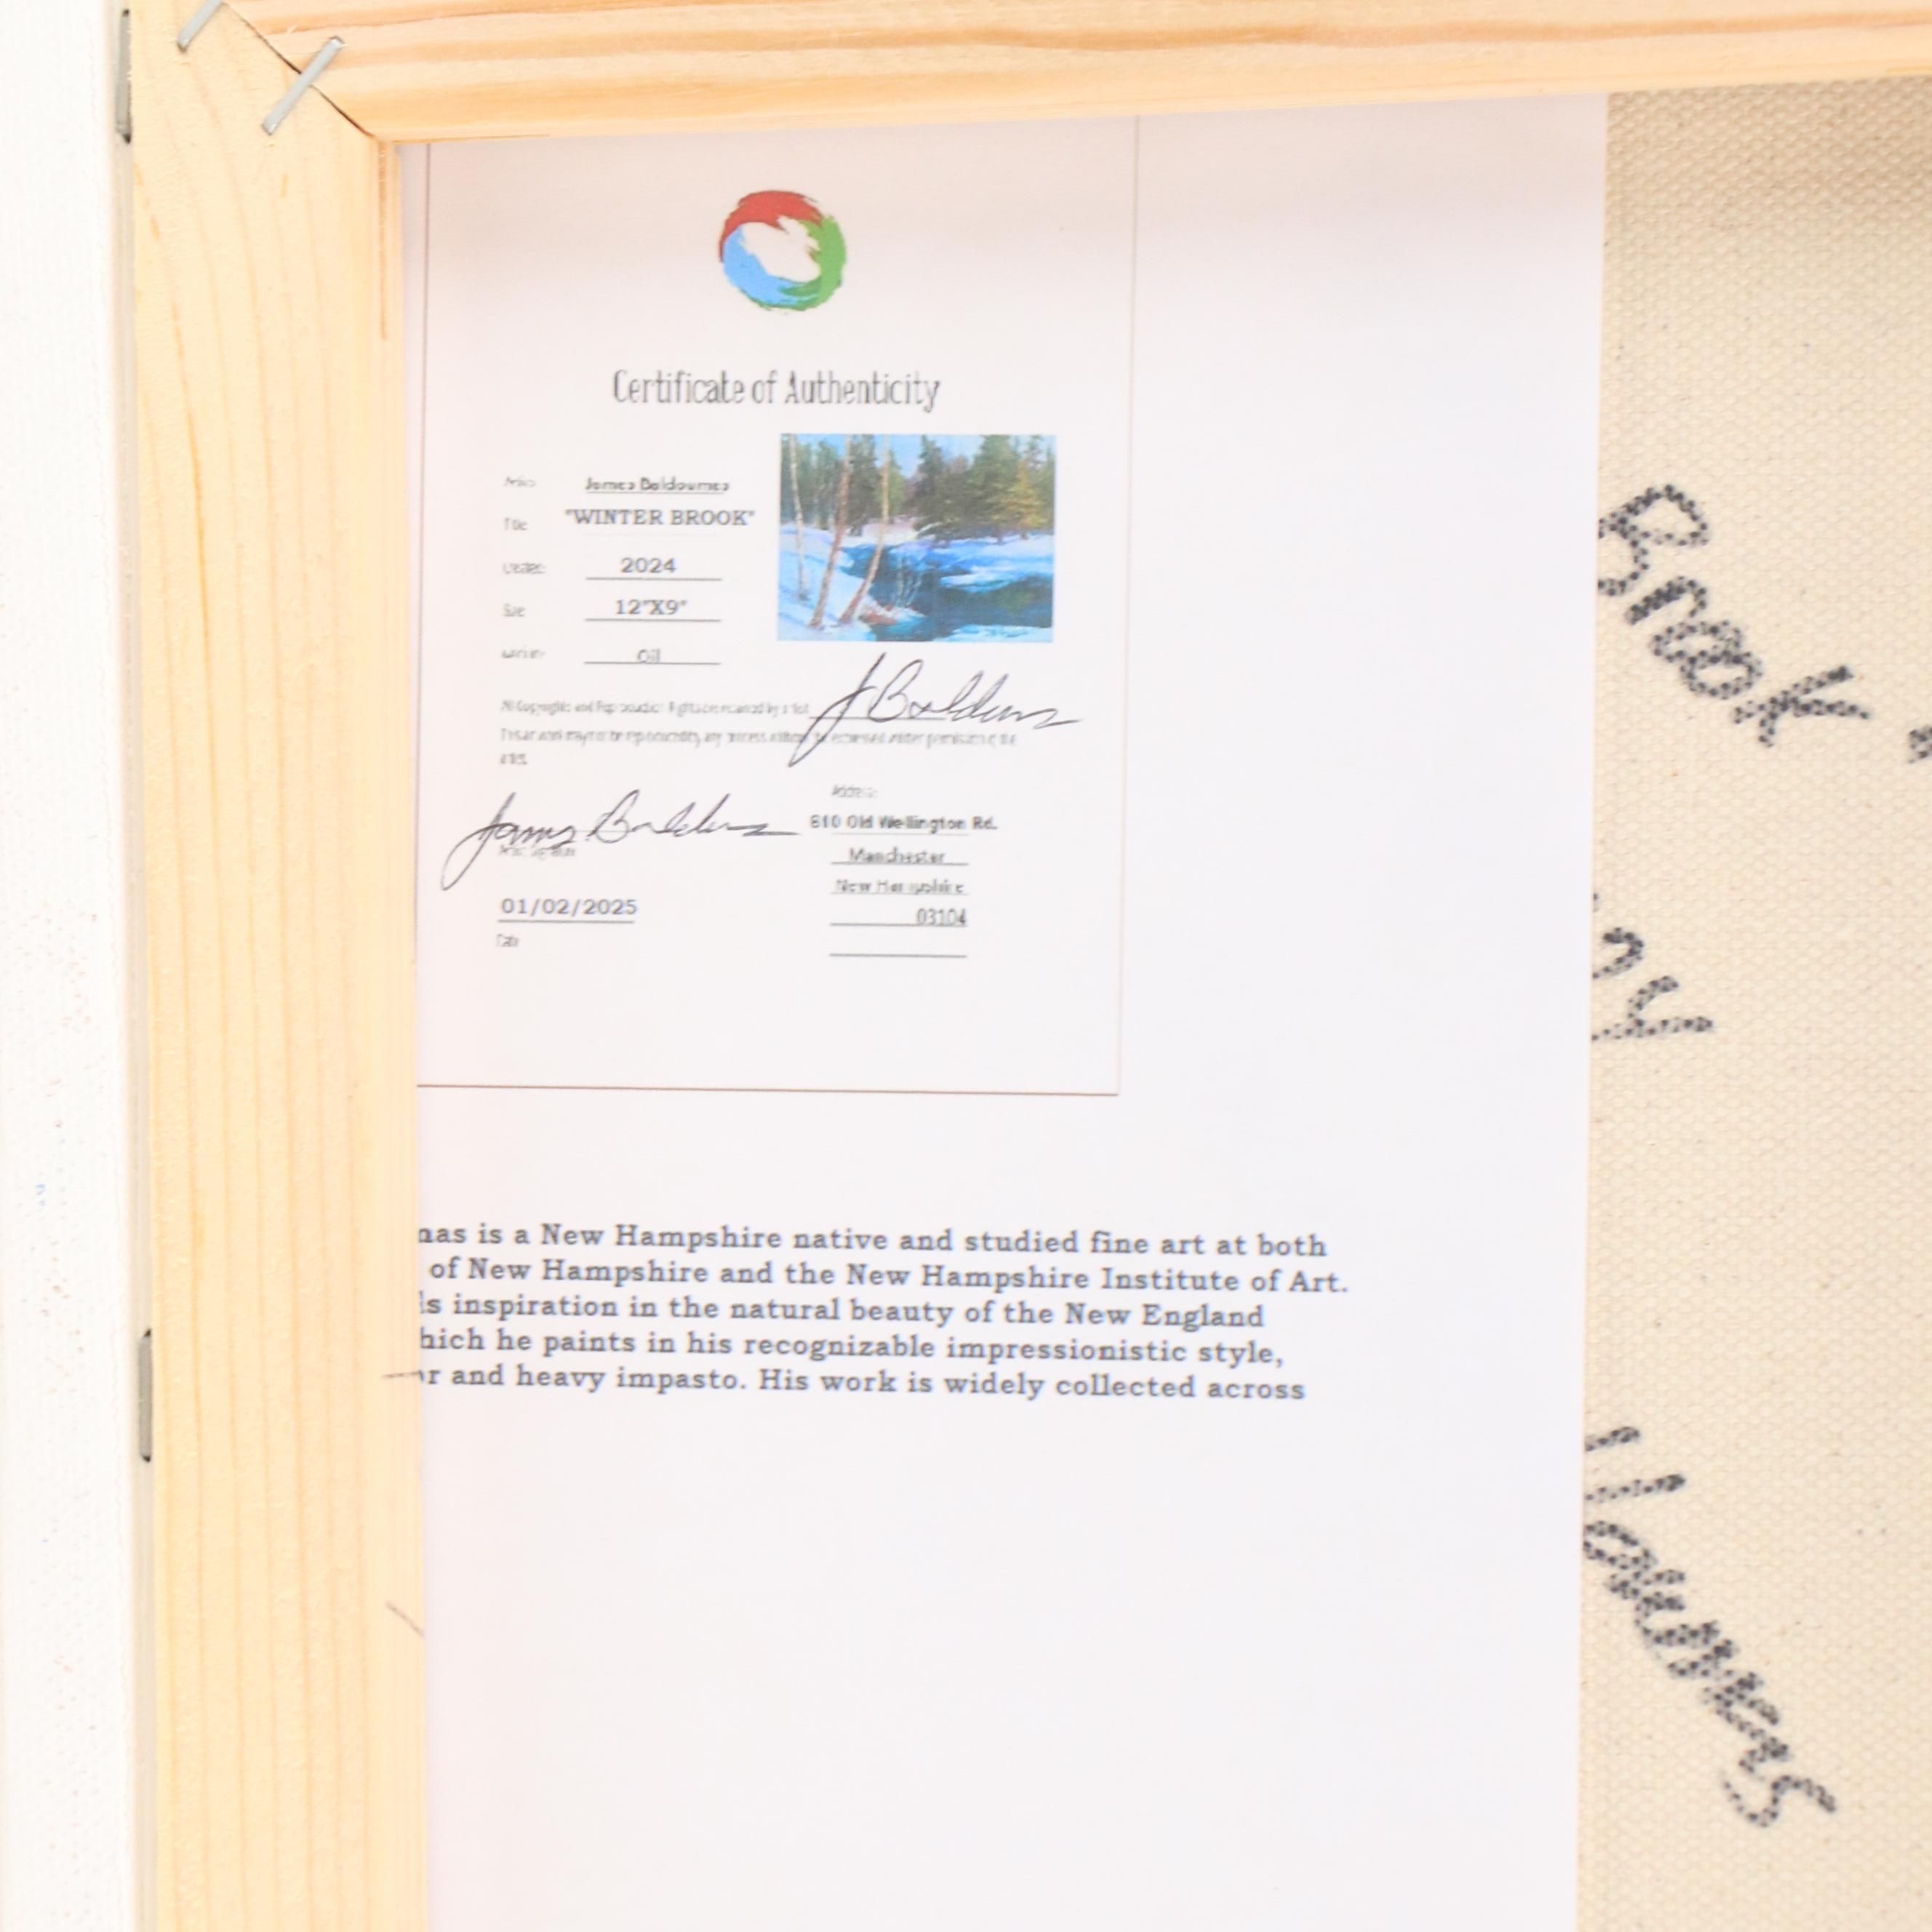 Certificate of Authenticity
James Baldoumas
Title "WINTER BROOK"
Created: 2024
Size: 12"X9"
Medium: Oil
All Copyrights and Reproduction Rights are retained by artist
This art work may not be reproduced by any process without the expressed written permission of the
artist.
J Baldoumas
James Baldoumas
Address:
810 Old Wellington Rd.
Manchester
New Hampshire
03104
01/02/2025
Date
nas is a New Hampshire native and studied fine art at both
of New Hampshire and the New Hampshire Institute of Art.
ds inspiration in the natural beauty of the New England
hich he paints in his recognizable impressionistic style,
r and heavy impasto. His work is widely collected across
Brook
by